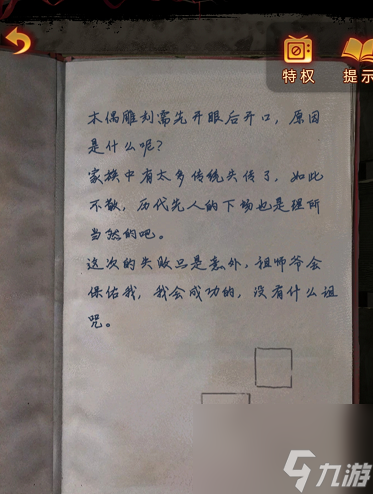 特权
提示
木偶雕刻需先开眼后开口，原因
是什么呢？
家族中有太多传统失传了，如此
不敬，历代先人的下场也是理所
当然的吧。
这次的失败只是意外，祖师爷会
保佑我，我会成功的，没有什么诅
咒。
九游